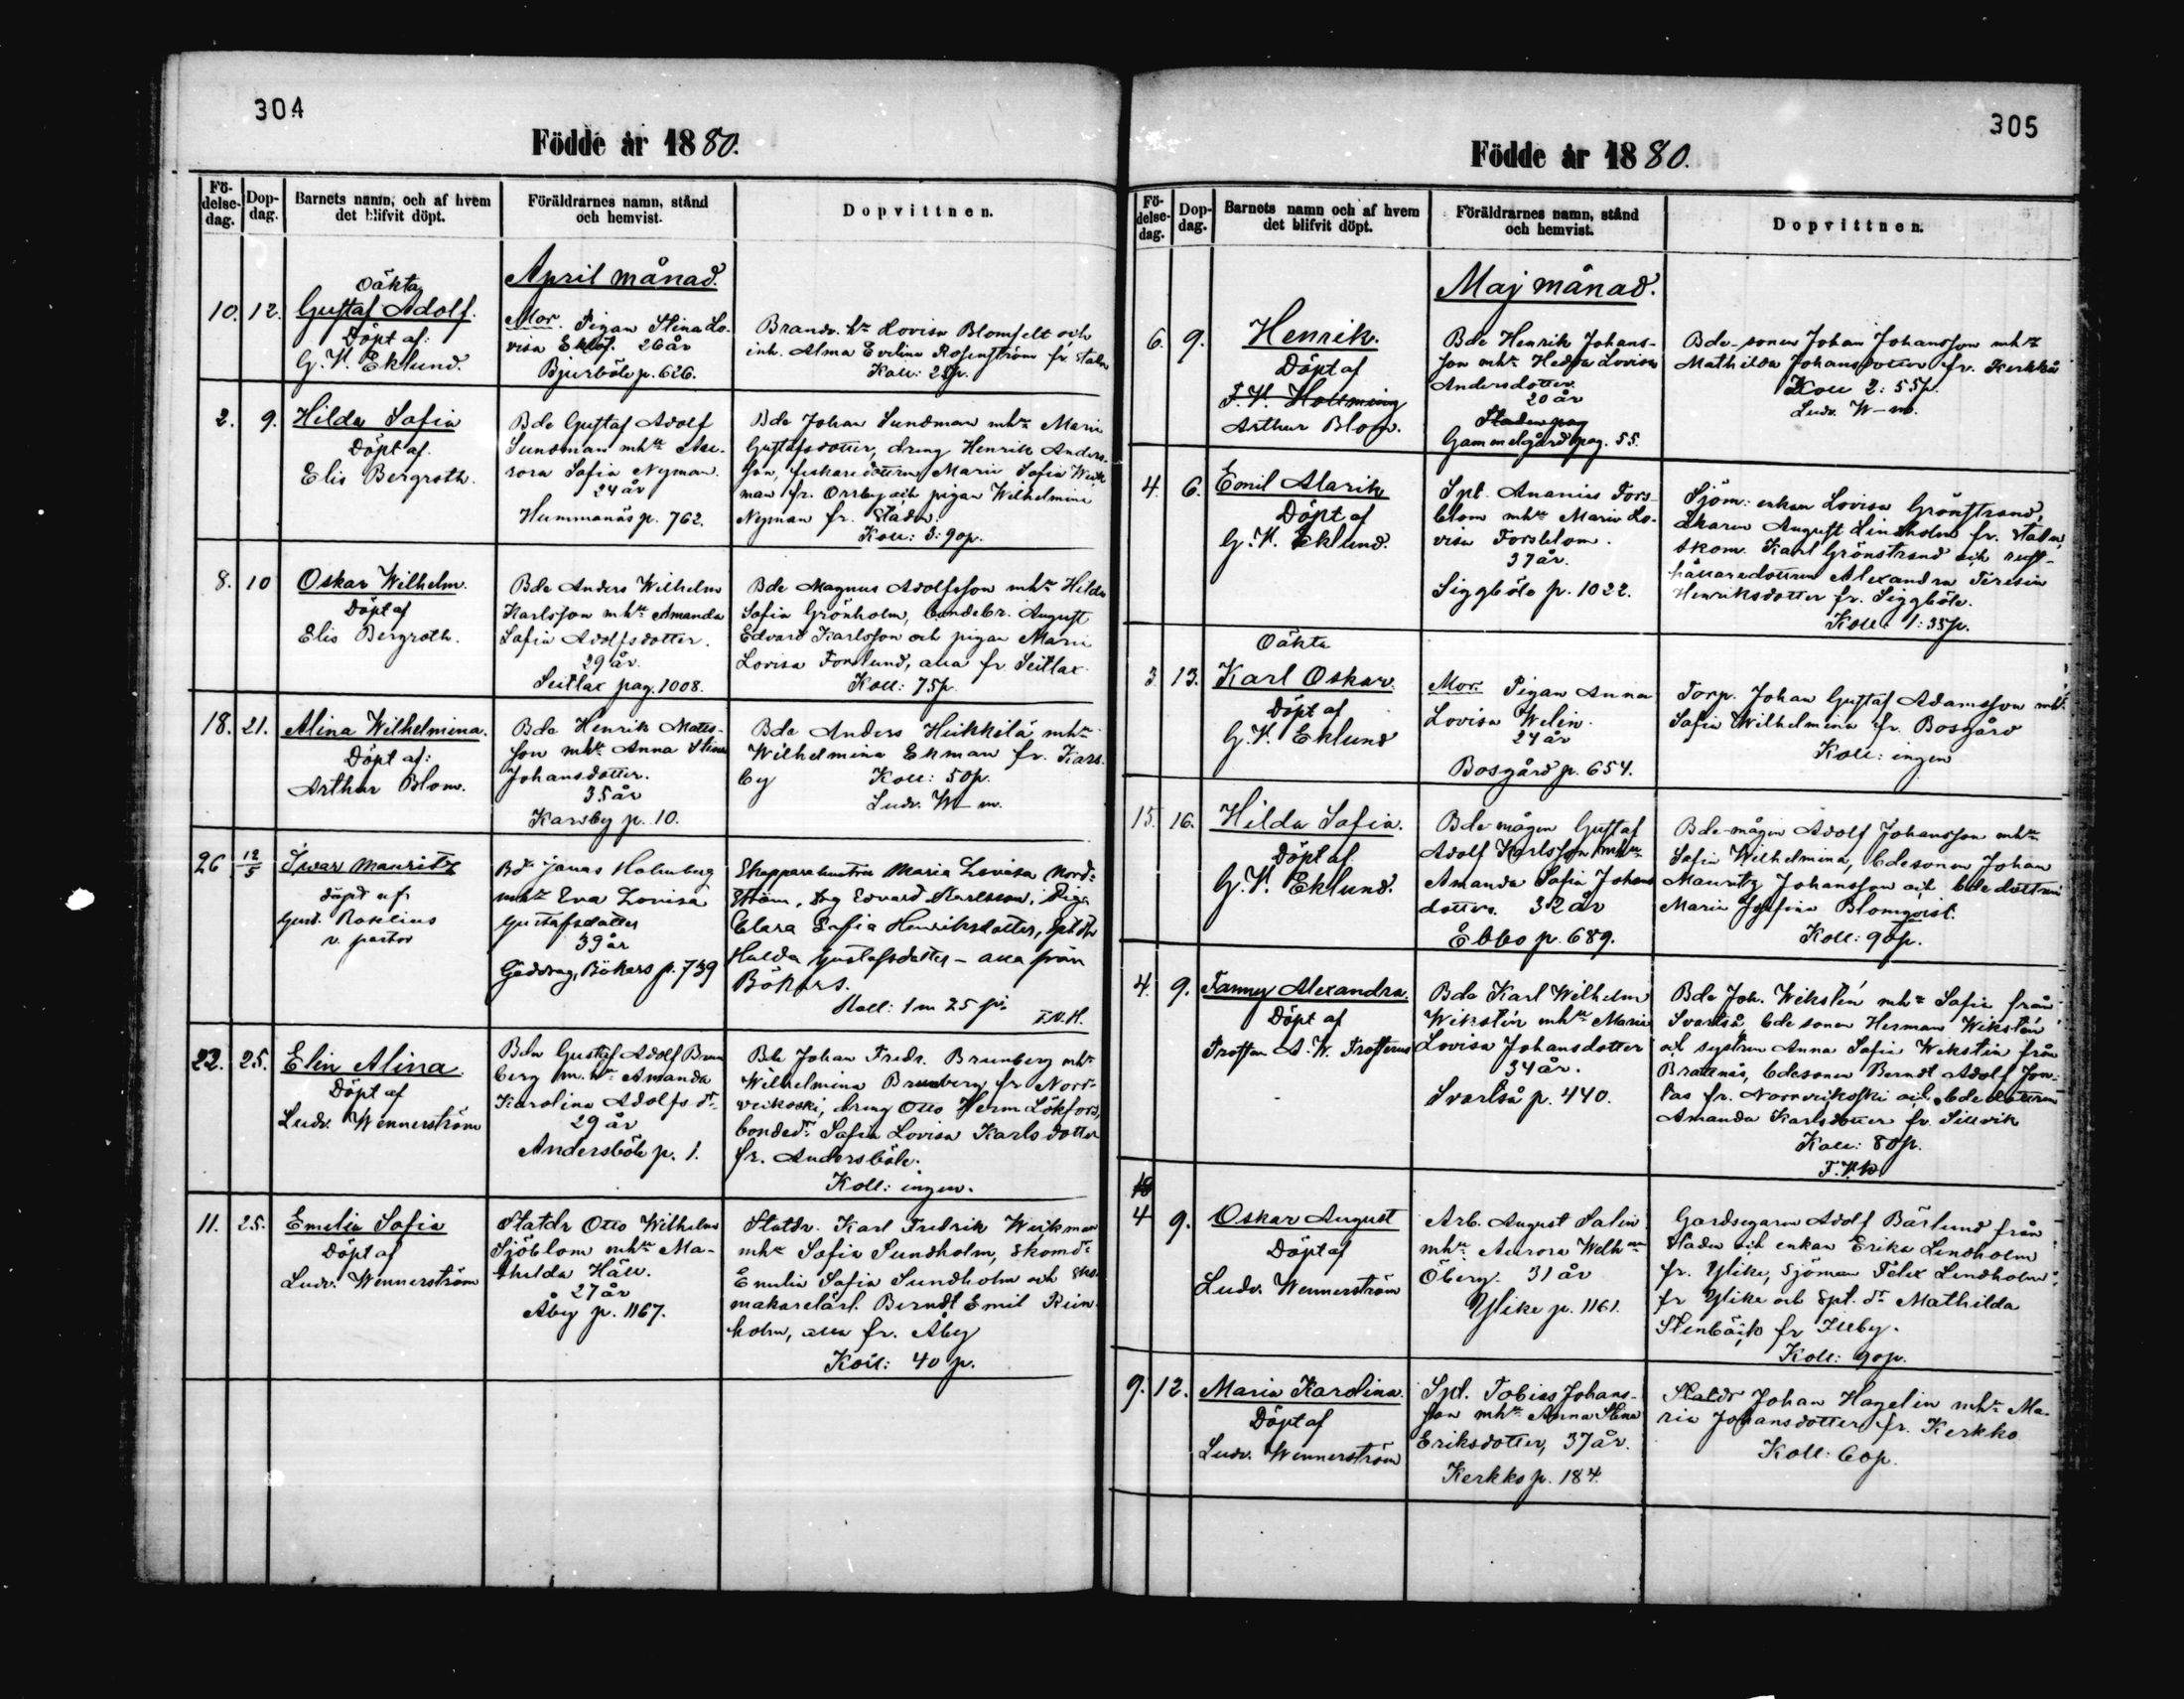 304
Födde år 1880.
Födelsedag.
Dopdag.
Barnets namn, och af hvem det blifvit döpt.
Föräldrarnes namn, stånd och hemvist.
Dopvittnen.
April månad.
10. 12.
Oäkta
Gustaf Adolf.
Döpt af:
G. V. Eklund.
Mor. Pigan Stina Lo-
visa Eklöf. 26 år
Bjurböle p. 626.
Brandv. hu Lovisa Blomfelt och
inh. Alma Evelina Rosenström fr. staden
Koll: 25p.
2. 9.
Hilda Sofia
Döpt af.
Elis Bergroth.
Bde Gustaf Adolf
Sundman mhu Au-
rora Sofia Nyman.
24 år
Hummanäs p. 762.
Bde Johan Sundman mhu Maria
Gustafsdotter, dreng Henrik Anders-
son, fiskaredottren Maria Sofia Wiik
man fr. Orrby och pigan Wilhelmina
Nyman fr. Staden.
Koll: 3: 90p.
8. 10
Oskar Wilhelm.
Döpt af
Elis Bergroth.
Bde Anders Wilhelm
Karlsson mhu Amanda
Sofia Adolfsdotter.
29 år.
Seitlax pag. 1008.
Bde Magnus Adolfsson mhu Hilda
Sofia Grönholm, bondebr. August
Edvard Karlsson och pigan Maria
Lovisa Forslund, alla fr Seitlax.
Koll: 75p.
18. 21.
Alina Wilhelmina.
Döpt af:
Arthur Blom.
Bde Henrik Mats-
son mhu Anna Stina
Johansdotter.
35 år
Karsby p. 10.
Bde Anders Heikkilä mhu
Wilhelmina Ekman fr. Kars-
by Koll: 50p.
Ludv. W-m.
26 12/5
Iwar Mauritz
döpt af
Gust. Roselius
v. pastor
Bd Jonas Holmberg
mhu Eva Lovisa
Gustafsdotter
39 år
Gäddrag, Bökars p. 739
Skepparehustru Maria Lovisa Nord-
ström, drg Edvard Karlsson, Piga
Clara Sofia Henriksdotter,
Hulda Gustafsdotter - alla från
Bökars.
Koll: 1 m 25 pi.
F.V.H.
22. 25.
Elin Alina.
Döpt af
Ludv. Wennerström
Bdn Gustaf Adolf Brun
berg m.hu Amanda
Karolina Adolfs dr.
29 år
Andersböle p. 1.
Bde Johan Fredr. Brunberg mhu
Wilhelmina Brunberg fr Norr-
veikoski, dreng Otto Herm. Lökfors,
bondedr Sofia Lovisa Karlsdotter
fr. Andersböle.
Koll: ingen.
11. 25.
Emelia Sofia
Döpt af
Ludv. Wennerström
Statdr Otto Wilhelm
Sjöblom mhu Ma-
thilda Häll.
27 år
Åby p. 1167.
Statdr. Karl Fredrik Weikman
mhu Sofia Sundholm, skomdr
Emilia Sofia Sundholm och sko-
makarelärl. Berndt Emil Rein-
holm, alla fr. Åby
Koll: 40 p.
305
Födde år 1880.
Födelsedag.
Dopdag.
Barnets namn och af hvem det blifvit döpt.
Föräldrarnes namn, stånd och hemvist.
Dopvittnen.
Maj månad.
6. 9.
Henrik.
Döpt af
F. V. Hollming
Arthur Blom.
Bde Henrik Johans-
son mhu Hedda Lovisa
Andersdotter.
20 år
Staden pag
Gammelgård pag. 55.
Bde-sonen Johan Johansson mhu
Mathilda Johansdotter fr. Kerkko
Koll 2: 55p.
Ludv. W-m.
4. 6.
Emil Alarik
Döpt af
G. V. Eklund.
Spt. Ananias Fors-
blom mhu Maria Lo-
visa Forsblom.
37 år.
Siggböle p. 1022.
Sjöm: enkan Lovisa Grönstrand,
åkaren August Lindholm fr. staden,
skom. Karl Grönstrand och rust-
hållaredottren Alexandra Teresia
Henriksdotter fr. Siggböle.
Koll: 1: 35p.
3. 13.
Oäkta
Karl Oskar.
Döpt af
G. V. Eklund
Mor. Pigan Anna
Lovisa Welin.
24 år
Bosgård p. 654.
Torp. Johan Gustaf Adamsson mhu
Sofia Wilhelmina fr. Bosgård
Koll: ingen
15. 16.
Hilda Sofia.
Döpt af
G. V. Eklund.
Bde-mågen Gustaf
Adolf Karlsson mhu
Amanda Sofia Johans
dotter. 32 år
Ebbo p. 689.
Bde-mågen Adolf Johansson mhu
Sofia Wilhelmina, bdesonen Johan
Mauritz Johansson och bdedottren
Maria Josefina Blomqvist.
Koll: 90p.
4. 9.
Fanny Alexandra.
Döpt af
A. W. Frosterus
Bde Karl Wilhelm
Wikstén mhu Maria
Lovisa Johansdotter
34 år.
Svartså p. 440.
Bde Joh. Wekstén mhu Sofia från
Svartså, bdesonen Herman Wikstén
och systren Anna Sofia Wekstén från
Brattnäs, bdesonen Berndt Adolf Jon-
fr. Norrveikoski och bdedottren
Amanda Karlsdotter fr. Sillvik
Koll: 80p.
4 9.
Oskar August
Döpt af
Ludv. Wennerström
Arb. August Salin
mhu Aurora Welhna
Öberg. 31 år
Ylike p. 1161.
Gardsegaren Adolf Bärlund från
staden och enkan Erika Lindholm
fr. Ylike, sjöman Felix Lindholm
fr Ylike och Spt. dr Mathilda
Stenbäck fr Illby.
Koll: 90p.
9. 12.
Maria Karolina.
Döpt af
Ludv. Wennerström
Spt. Tobias Johans-
son mhu Anna Stina
Eriksdotter, 37 år.
Kerkko p. 184.
Statdr Johan Hagelin mhu Ma-
ria Johansdotter fr. Kerkko
Koll: 60p.